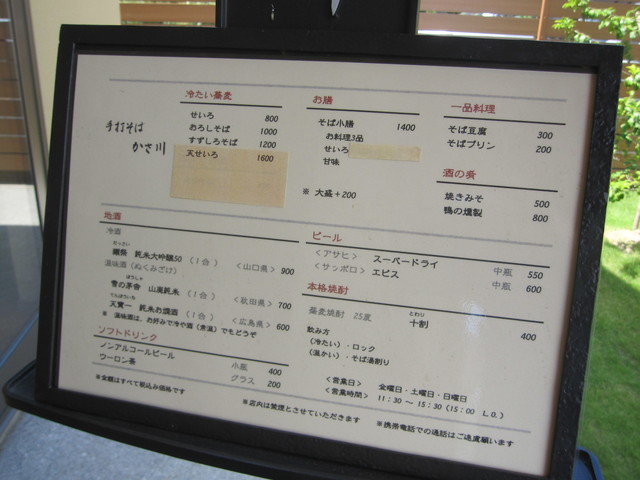 手打そば
かさ川
冷たい蕎麦
せいろ 800
おろしそば 1000
すずしろそば 1200
天せいろ 1600
お膳
そば小膳 1400
お料理3品
せいろ
甘味
※ 大盛+200
一品料理
そば豆腐 300
そばプリン 200
酒の肴
焼きみそ 500
鴨の燻製 800
地酒
冷酒
だっさい
獺祭 純米大吟醸50 (1合) <山口県> 900
温味酒(ぬくみざけ)
雪の茅舎 山廃純米 (1合) <秋田県> 700
てんぽういち
天寶一 純米お燗酒 (1合) <広島県> 600
※ 温味酒は、お好みで冷や酒(常温)でもどうぞ
ソフトドリンク
ノンアルコールビール 小瓶 400
ウーロン茶 グラス 200
ビール
<アサヒ> スーパードライ 中瓶 550
<サッポロ> エビス 中瓶 600
本格焼酎
とわり
蕎麦焼酎 25度 十割 400
飲み方
(冷たい)・ロック
(温かい)・そば湯割り
<営業日> 金曜日・土曜日・日曜日
<営業時間> 11:30 ～ 15:30 (15:00 L.O.)
※金額はすべて税込み価格です
※店内は禁煙とさせていただきます
※携帯電話での通話はご遠慮願います